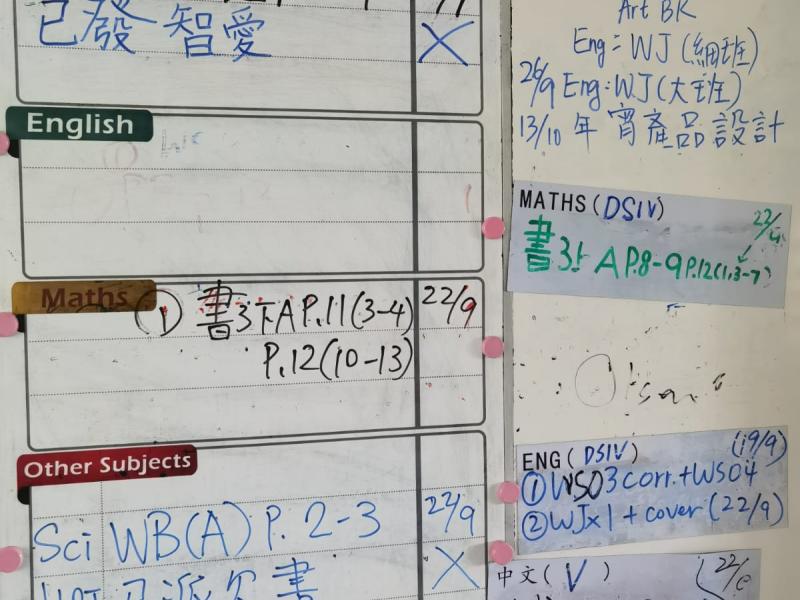 已發 智愛 X
English
Maths
① 書3下A P.11(3-4) 22/9
P.12(10-13)
Other Subjects
Sci WB(A) P. 2-3 22/9
X
Art BK
Eng = WJ (細班)
26/9 Eng: WJ (大班)
13/10 年宵產品設計
MATHS(DSIV) 22/9
書3上 A P.8-9 P.12(1,3-7)
ENG(DSIV) (19/9)
① WS03 corr. + WS04
② WJx1 + cover (22/9)
中文(V)